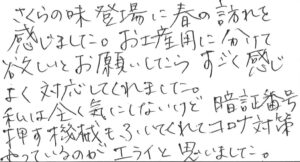 さくらの味登場に春の訪れを
感じました。お土産用に分けて
欲しいとお願いしたら すごく感じ
よく対応してくれました。
私は全く気にしないけど 暗証番号
押す機械もふいてくれてコロナ対策
やっているのがエライと思いました。